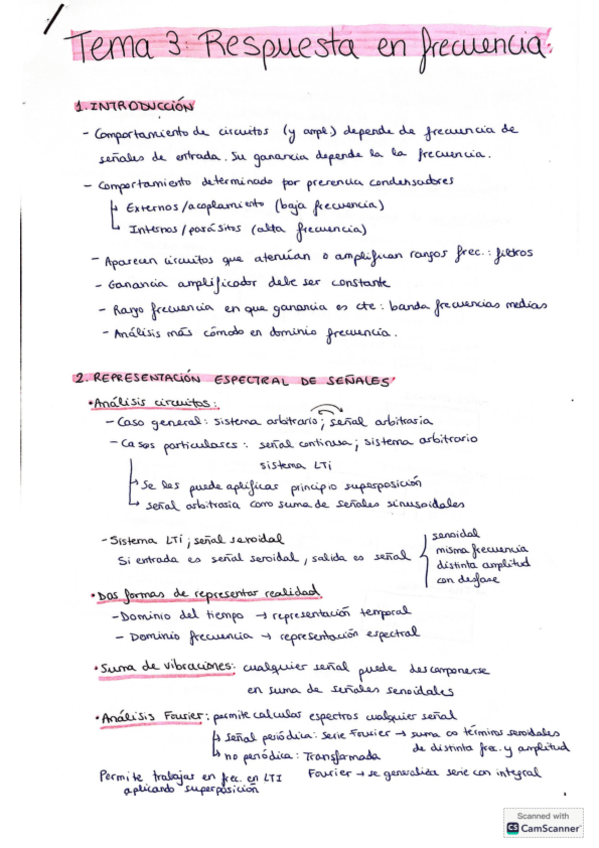 Tema 3: Respuesta en frecuencia.
1. INTRODUCCIÓN
- Comportamiento de circuitos (y ampl) depende de frecuencia de
señales de entrada. Su ganancia depende la la frecuencia.
- Comportamiento determinado por presencia condensadores
↳ Externos/acoplamiento (baja frecuencia)
↳ Internos/parásitos (alta frecuencia)
- Aparecen circuitos que atenúan o amplifican rangos frec.: filtros
- Ganancia amplificador debe ser constante
- Rango frecuencia en que ganancia es cte: banda frecuencias medias
- Análisis más cómodo en dominio frecuencia.
2. REPRESENTACIÓN ESPECTRAL DE SEÑALES
• Análisis circuitos:
- Caso general: sistema arbitrario; señal arbitraria
- Casos particulares: señal continua; sistema arbitrario
sistema LTi
↳ Se les puede aplificar principio superposición
↳ señal arbitraria como suma de señales sinusoidales
- Sistema LTi; señal senoidal
Si entrada es señal senoidal, salida es señal
senoidal
misma frecuencia
distinta amplitud
con desfase
• Dos formas de representar realidad
- Dominio del tiempo → representación temporal
- Dominio frecuencia → representación espectral
• Suma de vibraciones: cualquier señal puede descomponerse
en suma de señales senoidales
• Análisis Fourier: permite calcular espectros cualquier señal
↳ señal periódica: serie Fourier → suma ∞ términos senoidales
de distinta frec. y amplitud
↳ no periódica: Transformada
Fourier → se generaliza serie con integral
Permite trabajar en frec. en LTI
aplicando superposición
Scanned with
CS CamScanner